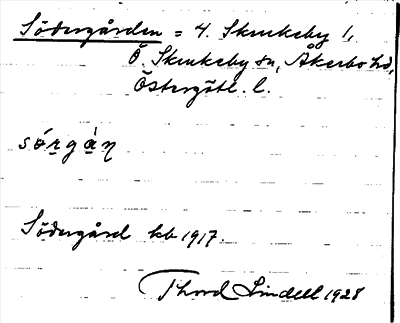 Södergården = 4. Skrukeby 1,
Ö. Skrukeby sn, Åkerbo hd,
Östergötl. l.
sǿrgàn
Södergård kb 1917.
Thord Lindell 1928